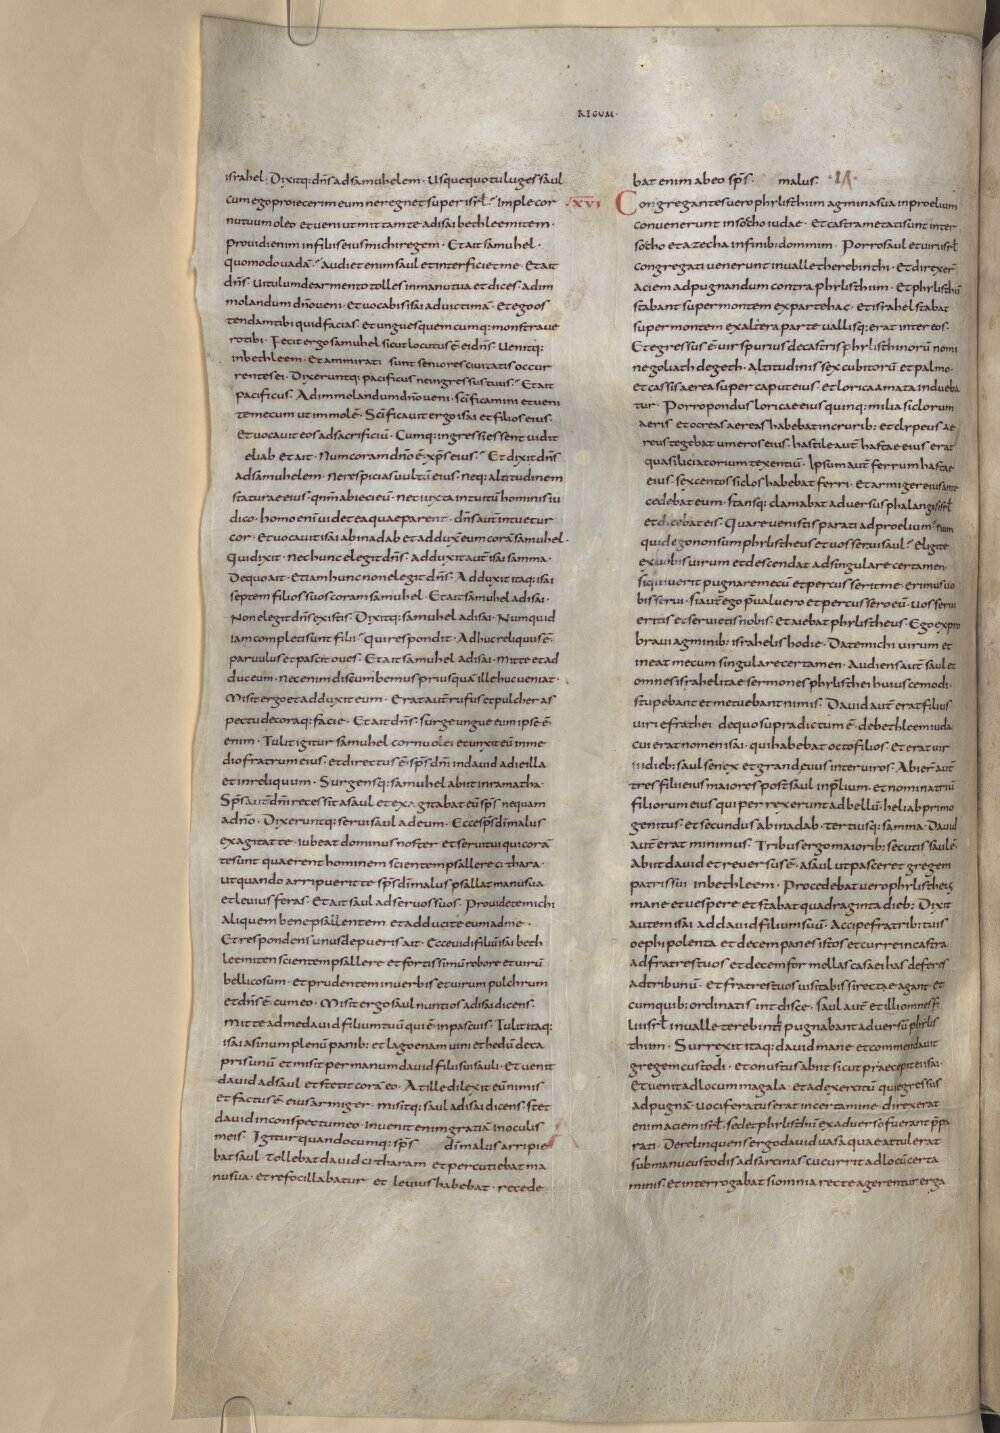 REGUM
israhel. Dixitq: dns ad samuhelem. Usquequo tu luges saul
cum ego proiecerim eum ne regnet super isrl? Imple cor
nu tuum oleo et veni ut mittam te ad isai bethleemitem.
providi enim in filiis eius michi regem. Et ait samuhel.
quomodo vadā? Audiet enim saul et interficiet me. Et ait
dns. Vitulum de armento tolles in manu tua et dices. Ad im
molandum dno veni. et vocabis isai ad victimā. et ego os
tendam tibi quid facias. et ungues quemcumq: monstrave
ro tibi. Fecit ergo samuhel sicut locutus ē ei dns. Venitq:
in bethleem. Et ammirati sunt seniores civitatis occur
rentes ei. Dixeruntq: pacificus ne ingressus tuus? Et ait
pacificus. Ad immolandum dno veni. scificamini et veni
te mecum ut immolē. Scificavit ergo isai et filios eius.
et vocavit eos ad sacrificiū. Cumq: ingressi essent vidit
eliab et ait. Num coram dno ē xps eius? Et dixit dns
ad samuhelem. ne respicias vultū eius. neq: altitudinem
staturae eius. qnm abieci eū. nec iuxta intuitū hominis iu
dico. homo enī videt ea quae parent. dns aut intuetur
cor. Et vocavit isai abinadab et adduxē eum corā samuhel.
Qui dixit. nec hunc elegit dns. adduxit aut isai samma.
De quo ait. Etiam hunc non elegit dns. Adduxit itaq: isai
septem filios suos coram samuhel. Et ait samuhel ad isai.
Non elegit dns ex istis. Dixitq: samuhel ad isai. Numquid
iam completi sunt filii? Qui respondit. Adhuc reliquus ē
parvulus et pascit oves. Et ait samuhel ad isai. mitte et ad
duc eum. nec enim discumbemus priusquā ille huc veniat.
Misit ergo et adduxit eum. Erat aut rufus et pulcher as
pectu decoraq: facie. Et ait dns. surge ungue eum ipse ē
enim. Tulit igitur samuhel cornu olei et unxit eū in me
dio fratrum eius. et directus ē sps dni in david a die illa
et in reliquum. Surgensq: samuhel abiit in ramatha.
Sps aut dni recessit a saul et exagitabat eū sps nequam
a dno. Dixeruntq: servi saul ad eum. Ecce sps di malus
exagitat te. iubeat dominus noster et servi tui qui corā
te sunt quaerent hominem scientem psallere cithara.
ut quando arripuerit te sps di malus psallat manu sua
et levius feras. Et ait saul ad servos suos. Providete michi
aliquem bene psallentem et adducite eum ad me.
Et respondens unus de pueris ait. Ecce vidi filiū isai beth
leemiten scientem psallere et fortissimū robore et virū
bellicosum. et prudentem in verbis et virum pulchrum
et dns ē cum eo. Misit ergo saul nuntios ad isai dicens.
mitte ad me david filium tuū qui ē in pascuis. Tulit itaq:
isai asinum plenū panib: et lagoenam vini et hedū de ca
pris unū et misit per manum david filii sui sauli. Et venit
david ad saul et stetit corā eo. At ille dilexit eū nimis
et factus ē eius armiger. misitq: saul ad isai dicens. stet
david in conspectu meo. invenit enim gratiā in oculis
meis. Igitur quandocumq: sps di malus arripie
bat saul. tollebat david citharam et percutiebat ma
nu sua. et refocillabatur et levius habebat. recede
bat enim ab eo sps malus.
XVI Congregantes vero phylisthiim agmina sua in proelium
convenerunt in sotho iudae. et castrametati sunt inter
sotho et azecha in finib: dommim. Porro saul et viri isrl
congregati venerunt in valle therebinthi. Et direxer
aciem ad pugnandum contra phylisthiim. Et phylisthiī
stabant super montem ex parte hac. et israhel stabat
super montem ex altera parte vallisq: erat inter eos.
Et egressus ē vir spurius de castris phylisthinorū nomi
ne goliath de geth. altitudinis sex cubitorū et palmo.
et cassis aerea super caput eius. et lorica amata indueba
tur. Porro pondus loricae eius quinq: milia siclorum
aeris. et ocreas aereas habebat in crurib: et clypeus ae
reus tegebat umeros eius. hastile aut hastae eius erat
quasi liciatorium texentiū. Ipsum aut ferrum hastae
eius. sexcentos siclos habebat ferri. Et armiger eius ante
cedebat eum. stansq: clamabat adversus phalangas isrl
et dicebat eis. Quare venistis parati ad proelium? Num
quid ego non sum phylistheus et vos servi saul? Eligite
ex vobis virum et descendat ad singulare certamen.
si quiverit pugnare mecū et percusserit me. erimus vo
bis servi. si aut ego pvaluero et percussero eū. vos servi
eritis et servietis nobis. Et aiebat phylistheus. Ego expro
bravi agminib: israhelis hodie. Date michi virum et
ineat mecum singulare certamen. Audiens aut saul et
omnes israhelitae sermones phylisthei huiuscemodi.
stupebant et metuebant nimis. David aut erat filius
viri efrathei de quo supra dictum ē. de bethleem iuda
cui erat nomen isai. qui habebat octo filios. et erat vir
in dieb: saul senex et grandevus inter viros. Abier aut
tres filii eius maiores post saul in plium. et nomina triū
filiorum eius qui perrexerunt ad bellū. heliab primo
genitus. et secundus abinadab. tertiusq: samma. David
aut erat minimus. Trib: ergo maiorib: secutis saulē.
Abiit david et reversus ē a saul ut pasceret gregem
patris sui in bethleem. Procedebat vero phylistheus
mane et vespere et stabat quadraginta dieb: Dixit
autem isai ad david filium suū. Accipe fratrib: tuis
oephi polenta et decem panes istos et curre in castra
ad fratres tuos et decem formellas casei has deferes
ad tribunū. et fratres tuos visitabis si recte agant et
cum quib: ordinati sint disce. Saul aut et illi omnes
filii isrl in valle terebinti pugnabant adversū phylis
thiim. Surrexit itaq: david mane et commendavit
gregem custodi. et onustus abiit sicut praeceperat isai.
Et venit ad locum magala et ad exercitū qui egressus
ad pugnā vociferatus erat in certamine. direxerat
enim aciem isrl. sed et phylisthiī ex adverso fuerant ppa
rati. Derelinquens ergo david vasa quae attulerat
sub manu custodis ad sarcinas. cucurrit ad locū certa
minis. et interrogabat si omnia recte agerentur erga